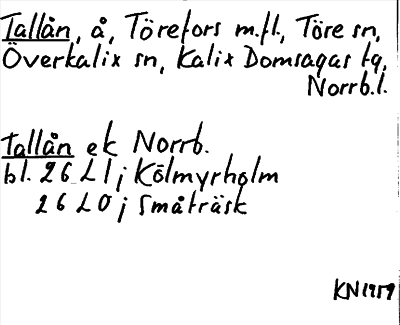 Tallån, å, Törefors m.fl., Töre sn,
Överkalix sn, Kalix Domsagas tg,
Norrb.l.
Tallån ek Norrb.
bl. 26 L 1 j Kölmyrholm
26 L 0 j Småträsk
KN1959